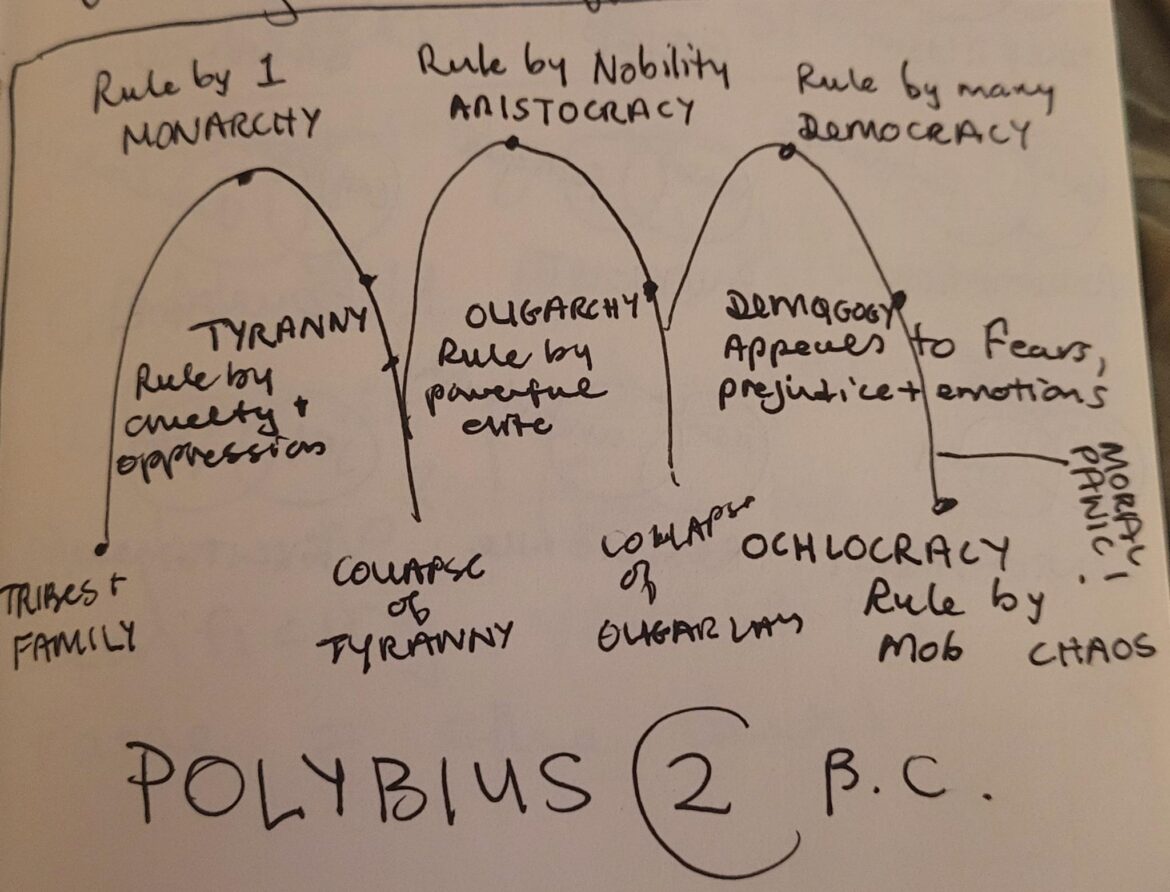 Rule by 1
MONARCHY
Rule by Nobility
ARISTOCRACY
Rule by many
DEMOCRACY
TYRANNY
Rule by
cruelty +
oppression
OLIGARCHY
Rule by
powerful
elite
DEMAGOGY
Appeals to Fears,
prejudice + emotions
MORAL
PANIC!
TRIBES +
FAMILY
COLLAPSE
of
TYRANNY
COLLAPSE
of
OCHLOCRACY
Rule by
Mob
CHAOS
POLYBIUS C2 B.C.